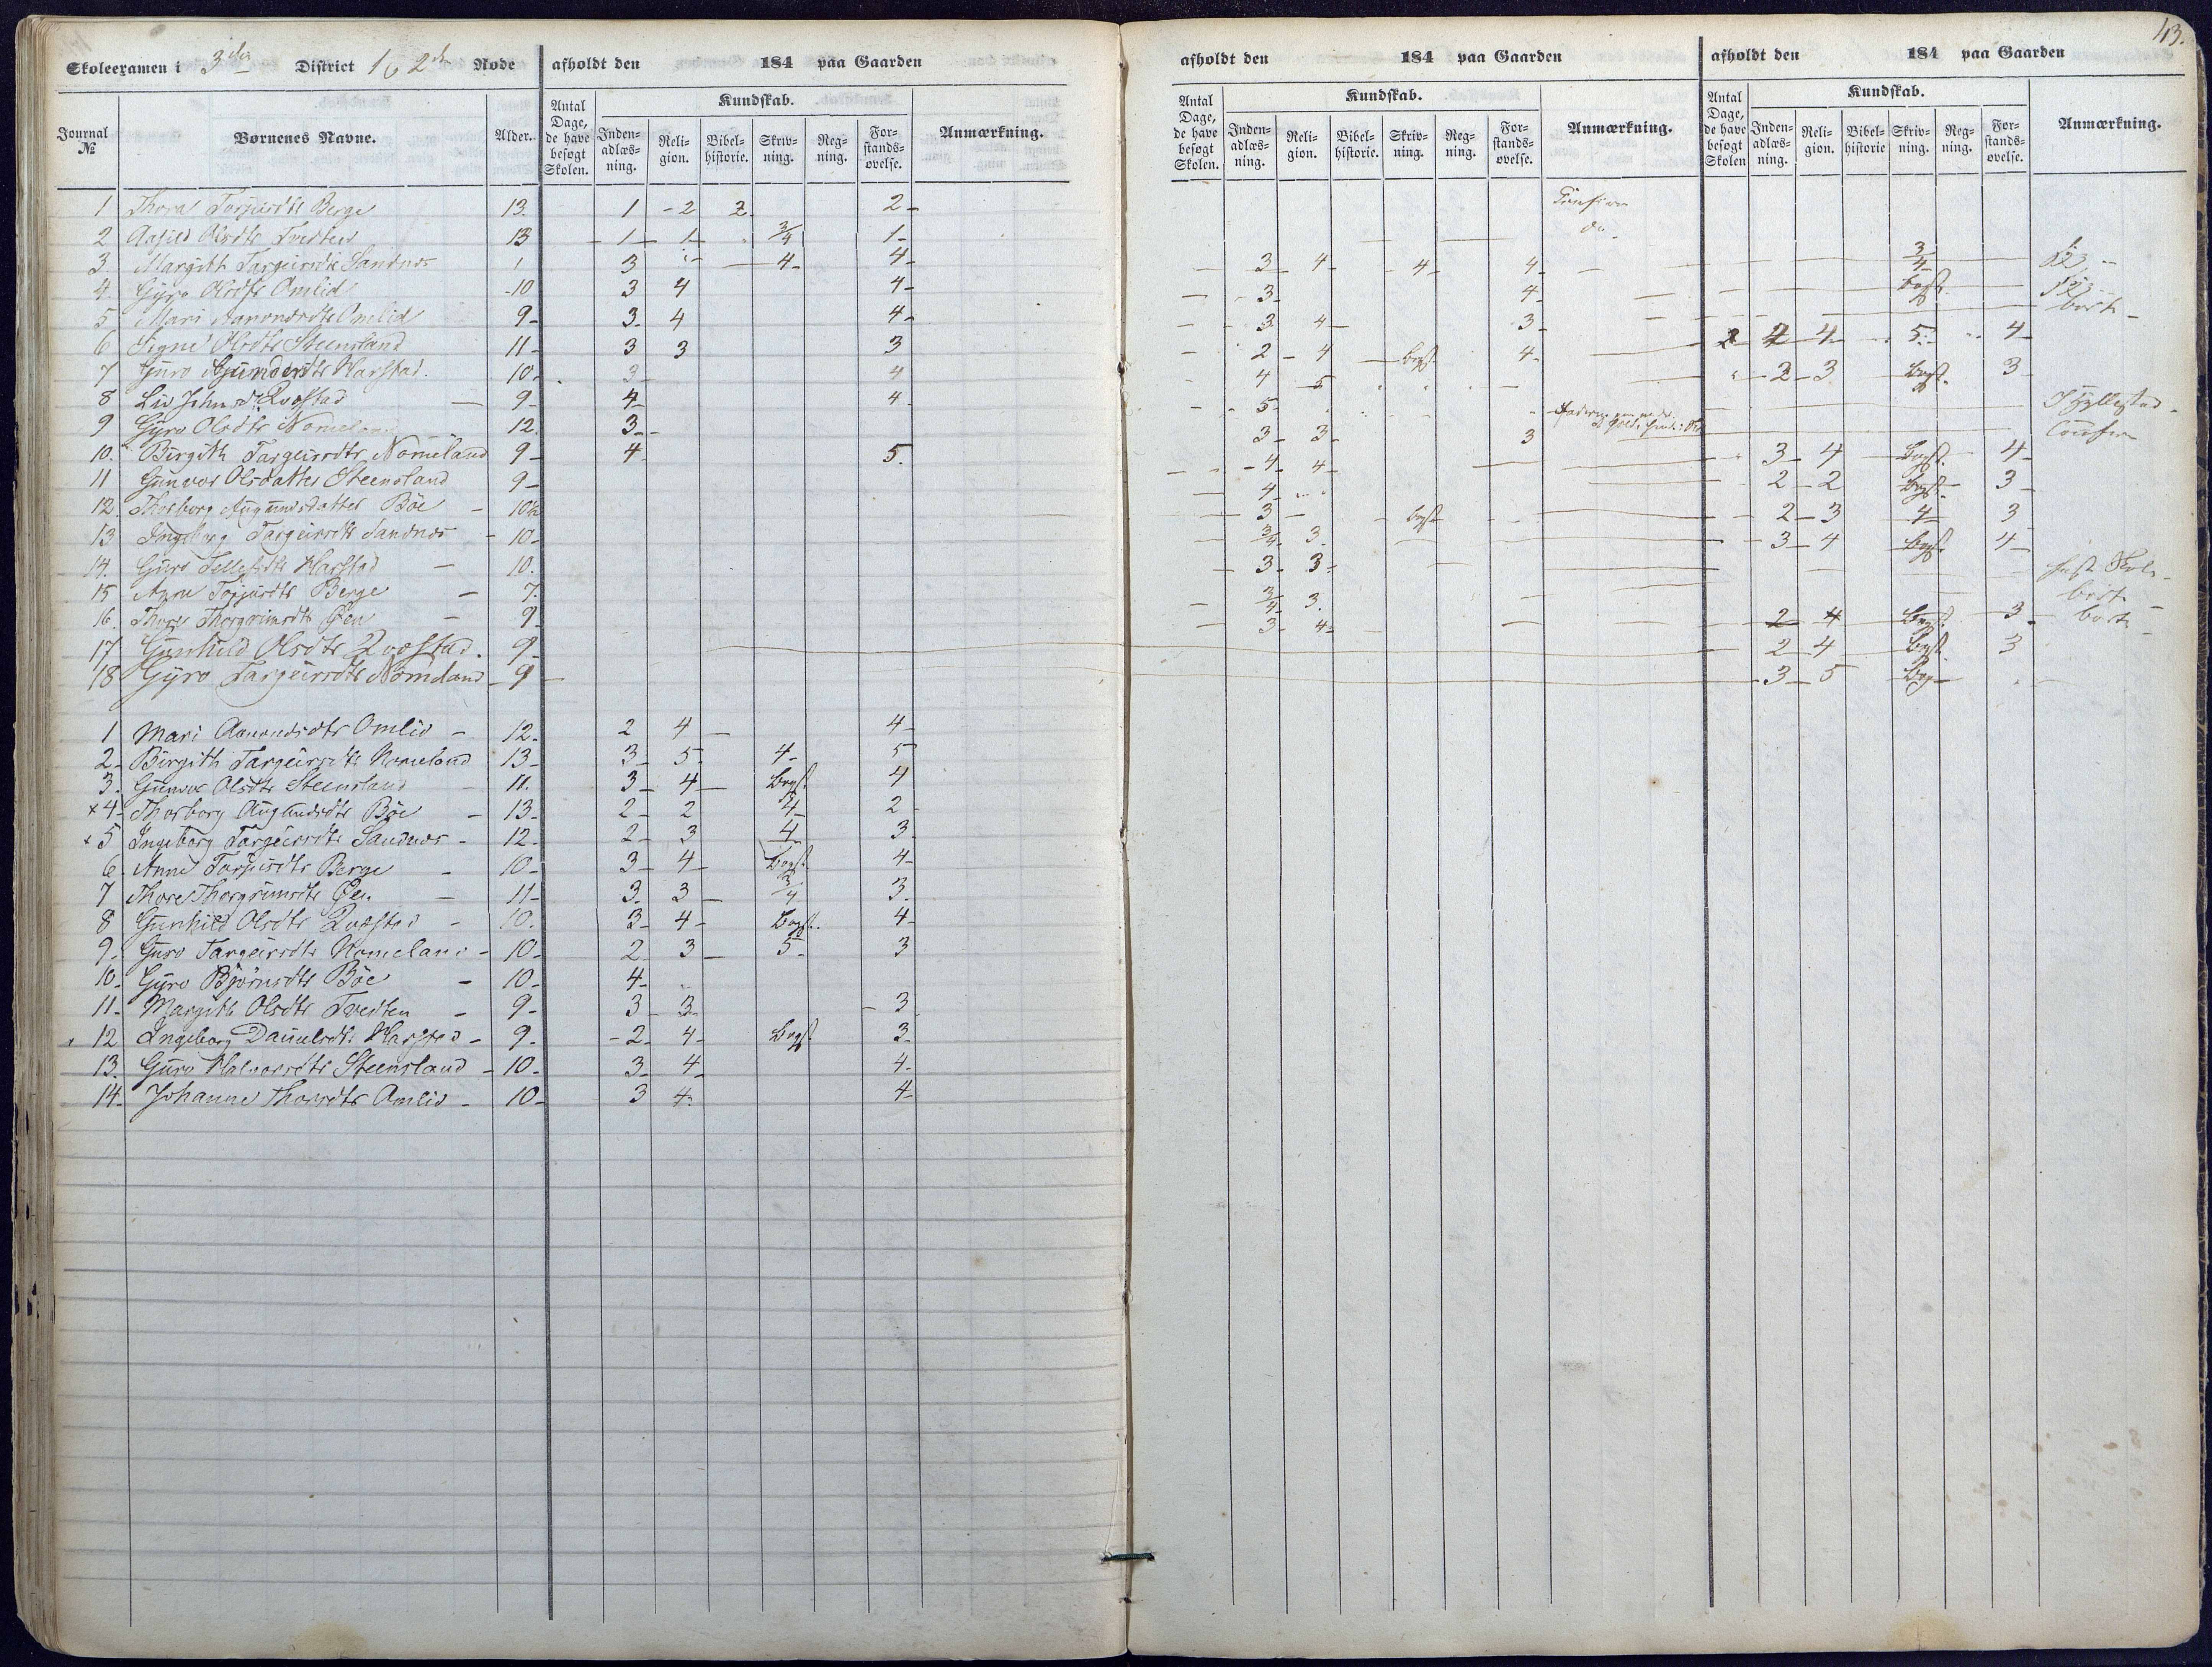 43.
Skoleexamen i 3die District 1 & 2den Rode afholdt den 184 paa Gaarden
Journal № Børnenes Navne. Alder. Antal Dage, de have besøgt Skolen. Kundskab. Inden-adlæs-ning. Reli-gion. Bibel-historie. Skriv-ning. Reg-ning. For-stands-øvelse. Anmærkning.
1 Thora Torjusdtr Berge 13. 1 - 2 2 2-
2 Aasild Olsdtr Tvedten 13 1 1 3/4 1-
3. Margith Targeirsdtr Sandnes 1 3 4- 4-
4. Gyro Olsdtr Omlid 10 3 4 4-
5 Mari Aanondsdtr Omlid 9- 3- 4 4-
6 Signe Olsdtr Steensland 11- 3 3 3
7 Guro Gundersdtr Harstad. 10. 3 4
8 Liv Johnsdtr Rvostad 9- 4- 4-
9 Gyro Olsdtr Nomeland 12. 3-
10. Birgith Targeirsdtr Nomeland 9- 4 5.
11 Gunvor Olsdatter Steensland 9-
12. Thorborg Augundsdatter Böe 10½
13 Ingeborg Targeirsdtr Sandnes 10-
14. Guro Tellefsdtr Harstad 10.
15 Anne Torjusdtr Berge 7.
16. Thore Thorgrimsdtr Øen 9
17 Gunhild Olsdtr Rvostad. 9-
18 Gyro Targeirsdtr Nomeland 9
1 Mari Aanondsdtr Omlid 12. 2 4 4-
2- Birgith Targeirsdtr Nomeland 13- 3 5 4- 5
3. Gunvor Olsdtr Steensland 11. 3 4 Begst. 4
×4- Thorborg Augundsdtr Böe 13- 2 2 4 2-
×5 Ingeborg Targeirsdtr Sandnes 12. 2 3 4 3.
6. Anne Torjusdtr Berge 10- 3 4 Begst. 4-
7 Thore Thorgrimsdtr Øen 11- 3. 3 3/4 3.
8 Gunhild Olsdtr Rvostad 10. 3 4- Begst. 4-
9. Guro Targeirsdtr Nomeland 10- 2 3 5- 3
10. Gyro Björnsdtr Böe 10- 4-
11- Margith Olsdtr Tvedten 9- 3 3 3
12. Ingeborg Danielsdtr Harstad 9- 2 4- Begst. 3-
13. Guro Halvorsdtr Steensland 10- 3 4 4-
14. Johanne Thorsdtr Omlid 10- 3 4. 4-
afholdt den 184 paa Gaarden
Antal Dage, de have besøgt Skolen. Kundskab. Inden-adlæs-ning. Reli-gion. Bibel-historie. Skriv-ning. Reg-ning. For-stands-øvelse. Anmærkning.
Confirm
do.
3 4 4 4
3 4
3 4 3
2 4 begst. 4
4 5
5
3 3 3
4 4
4
3 begst
3/4 3
3 3
3/4 3.
3 4
afholdt den 184 paa Gaarden
Antal Dage, de have besøgt Skolen Kundskab. Inden-adlæs-ning. Reli-gion. Bibel-historie Skriv-ning. Reg-ning. For-stands-øvelse. Anmærkning.
3/4
begst.
borte
2 4 4 5 4
2 3 begst. 3
I Hyllestad
Confirm
3 4 Begst. 4
2 2 begst. 3
2 3 4 3
3 4 begst. 4
fast Skole
borte
2 4 Begst. 3 borte
2 4 begst. 3
3 5 Beg